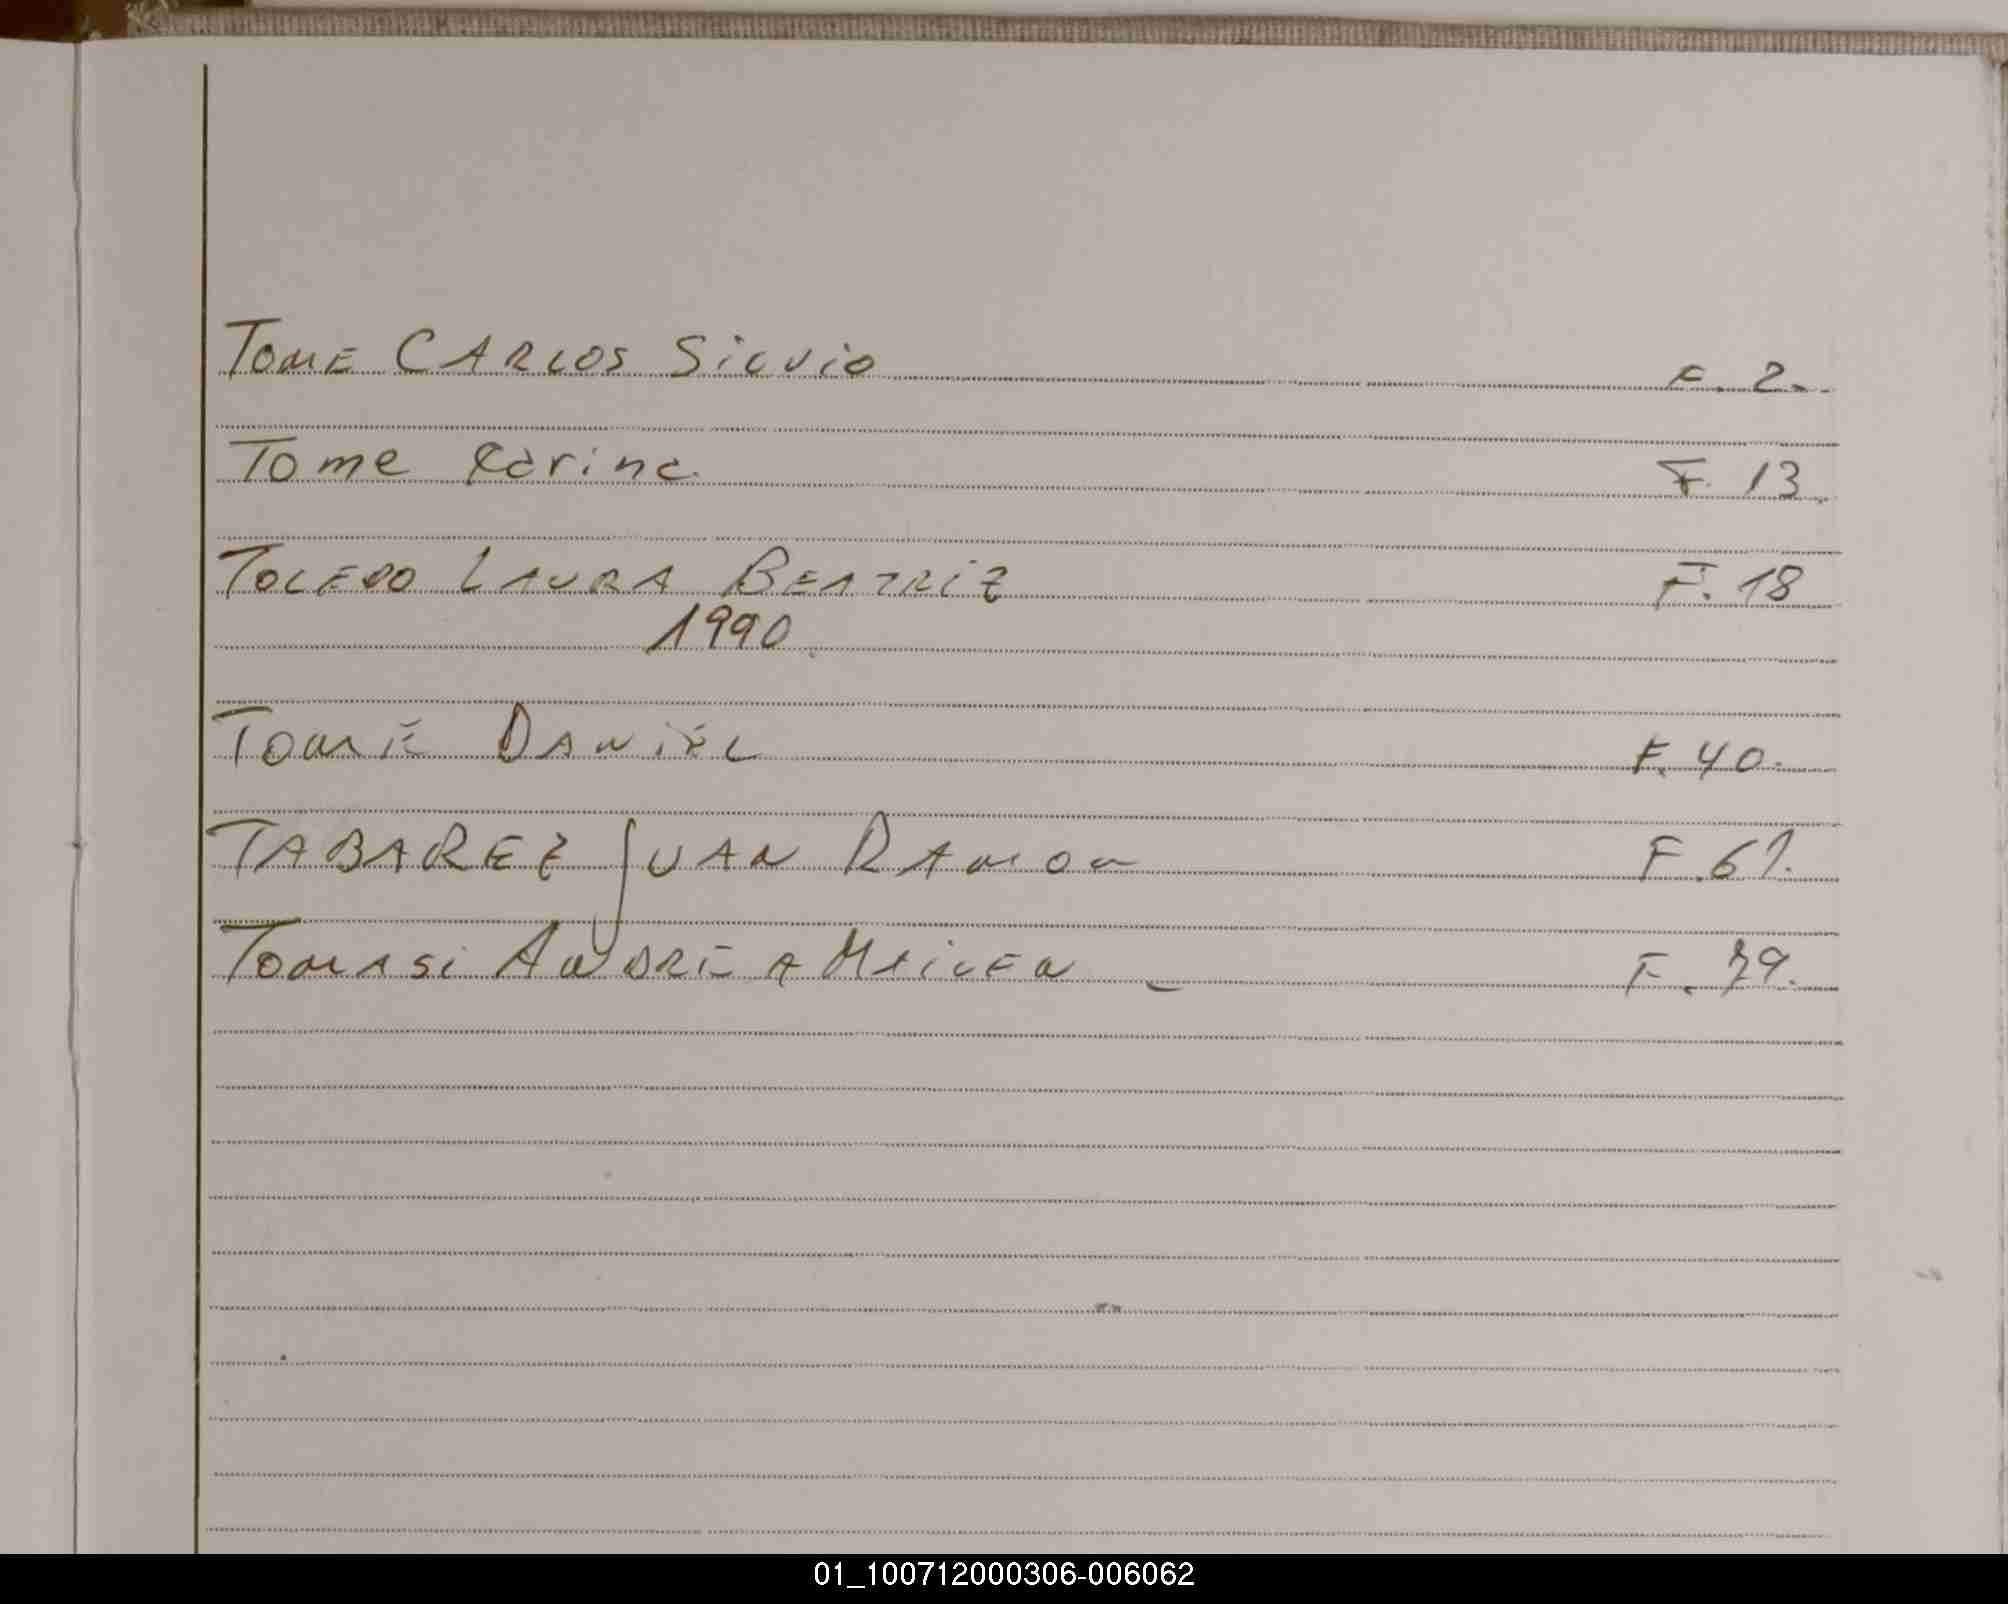 TOME CARLOS SiLViO F. 2.
Tome Carina F. 13.
TOLEDO LAURA BEATRiZ F. 18
1990
TOMÉ DANiEL F. 40.
TABAREZ JUAN RAMON F. 61.
TOMASi ANDREA MAiLEN F. 79.
01_100712000306-006062